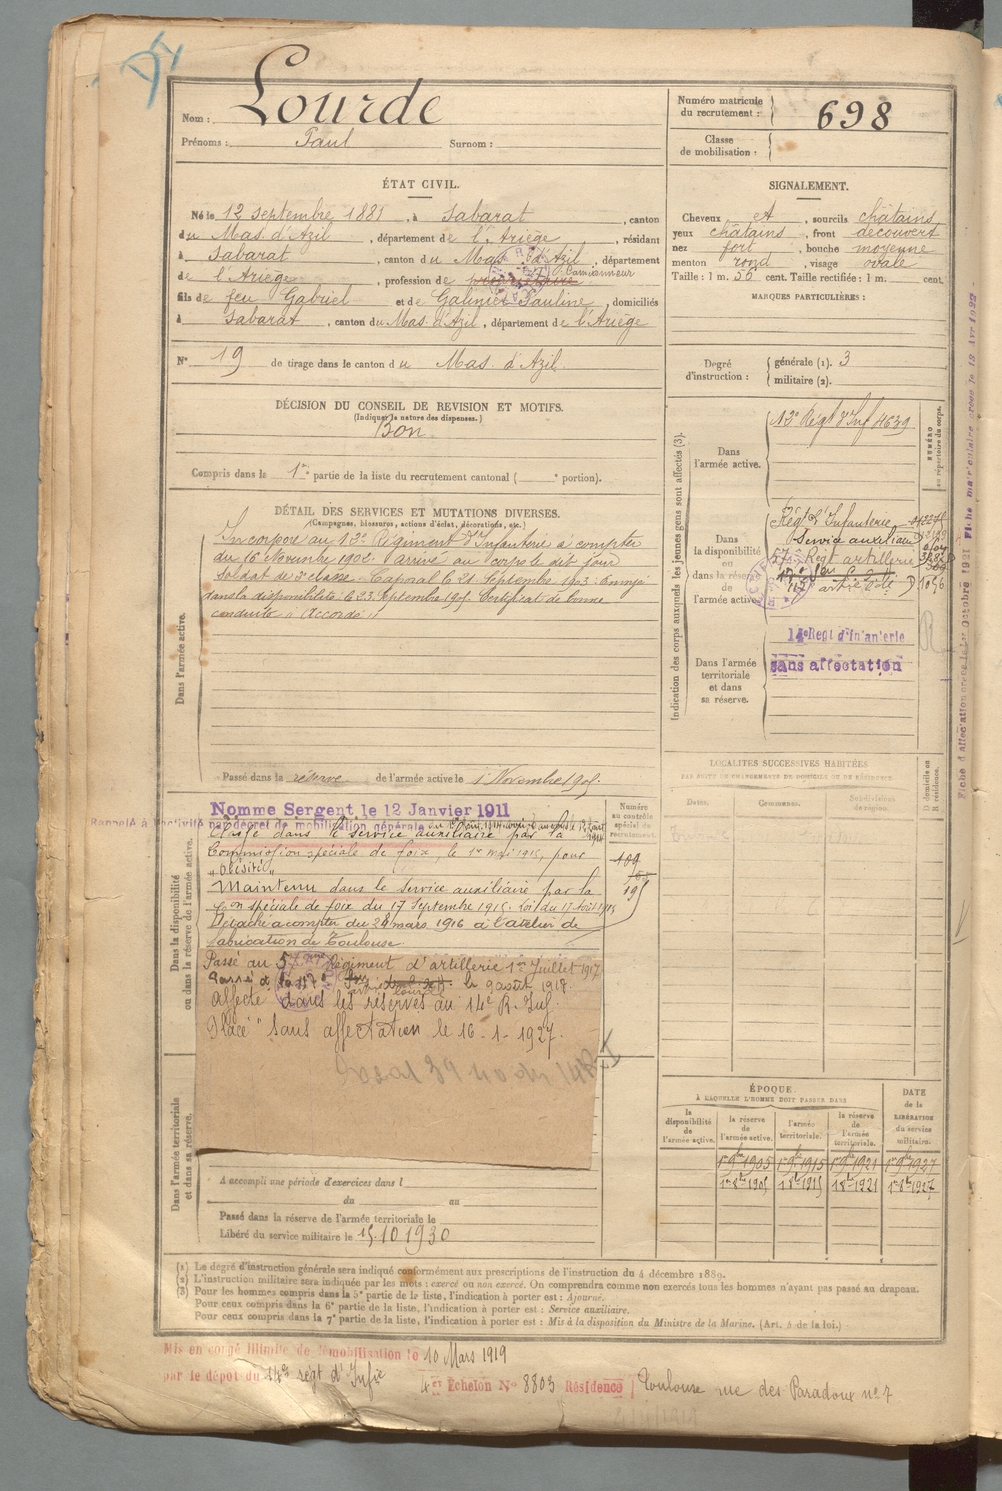 Nom : Lourde
Prénoms : Paul Surnom :
Numéro matricule du recrutement : 698
Classe de mobilisation :
ÉTAT CIVIL.
Né le 12 septembre 1881, à Sabarat, canton
du Mas d'Azil, département de l'Ariège, résidant
à Sabarat, canton du Mas d'Azil, département
Camionneur
de l'Ariège, profession de
fils de feu Gabriel et de Galinier Pauline, domiciliés
à Sabarat, canton du Mas d'Azil, département de l'Ariège
N° 19 de tirage dans le canton du Mas d'Azil.
SIGNALEMENT.
Cheveux et, sourcils châtains,
yeux châtains, front découvert
nez fort, bouche moyenne
menton rond, visage ovale
Taille : 1 m. 56 cent. Taille rectifiée : 1 m. cent.
MARQUES PARTICULIÈRES :
Degré d'instruction : générale (1). 3
militaire (2).
DÉCISION DU CONSEIL DE REVISION ET MOTIFS.
(Indiquer la nature des dispenses.)
Bon
Compris dans la 1re partie de la liste du recrutement cantonal ( e portion).
DÉTAIL DES SERVICES ET MUTATIONS DIVERSES.
(Campagnes, blessures, actions d'éclat, décorations, etc.)
Dans l'armée active.
Incorporé au 13e Régiment d'Infanterie à compter
du 16 Novembre 1902. Arrivé au corps le dit jour
Soldat de 2e classe. Caporal le 21 Septembre 1903. Envoyé
dans la disponibilité le 23 Septembre 1905. Certificat de bonne
conduite "Accordé".
Passé dans la réserve de l'armée active le 1 Novembre 1905.
Indication des corps auxquels les jeunes gens sont affectés (3).
NUMÉRO au répertoire du corps.
Dans l'armée active.
13e Régt d'Inf 4639
Dans la disponibilité ou dans la réserve de l'armée active.
Régt d'Infanterie
Service auxiliaire
57e Régt artillerie
1056
Dans l'armée territoriale et dans sa réserve.
14e Régt d'Infanterie
sans affectation
Fiche d'affectation créée le 1er Octobre 1921 Fiche matriculaire créée le 12 Avr 1922
Dans la disponibilité ou dans la réserve de l'armée active.
Nommé Sergent le 12 Janvier 1911
Rappelé à l'activité par décret de mobilisation générale du 1er Août 1914
Classé dans le service auxiliaire par la
Commission spéciale de foix, le 1er mai 1915, pour
"Obésité"
Maintenu dans le service auxiliaire par la
Con spéciale de foix du 17 Septembre 1915. Loi du 17 Août 1915
Détaché à compter du 24 mars 1916 à l'atelier de
fabrication de Toulouse.
Passé au 57ème Régiment d'artillerie 1er Juillet 1917
le 9 août 1918.
Affecté dans les réserves au 14e R. Inf
Placé "Sans affectation le 16-1-1927.
Numéro au contrôle spécial du recrutement.
109
LOCALITÉS SUCCESSIVES HABITÉES
PAR SUITE DE CHANGEMENTS DE DOMICILE OU DE RÉSIDENCE.
Dates. Communes. Subdivisions de région. D domicile ou R résidence.
ÉPOQUE
À LAQUELLE L'HOMME DOIT PASSER DANS
la disponibilité de l'armée active. la réserve de l'armée active. l'armée territoriale. la réserve de l'armée territoriale. DATE de la LIBÉRATION du service militaire.
1er 9bre 1905 1er 9bre 1915 1er 9bre 1921 1er 9bre 1927
1er 8bre 1905 1 8bre 1915 1 8bre 1921 1er 8bre 1927
Dans l'armée territoriale et dans sa réserve.
A accompli une période d'exercices dans l
du au
Passé dans la réserve de l'armée territoriale le
Libéré du service militaire le 15.10 1930
(1) Le degré d'instruction générale sera indiqué conformément aux prescriptions de l'instruction du 4 décembre 1889.
(2) L'instruction militaire sera indiquée par les mots : exercé ou non exercé. On comprendra comme non exercés tous les hommes n'ayant pas passé au drapeau.
(3) Pour les hommes compris dans la 5e partie de la liste, l'indication à porter est : Ajourné.
Pour ceux compris dans la 6e partie de la liste, l'indication à porter est : Service auxiliaire.
Pour ceux compris dans la 7e partie de la liste, l'indication à porter est : Mis à la disposition du Ministre de la Marine. (Art. 4 de la loi.)
Mis en congé illimité de démobilisation le 10 Mars 1919
par le dépôt du 14e régt d'Infie
4er Echelon N° 8803 Résidence Toulouse rue des Paradoux n° 7